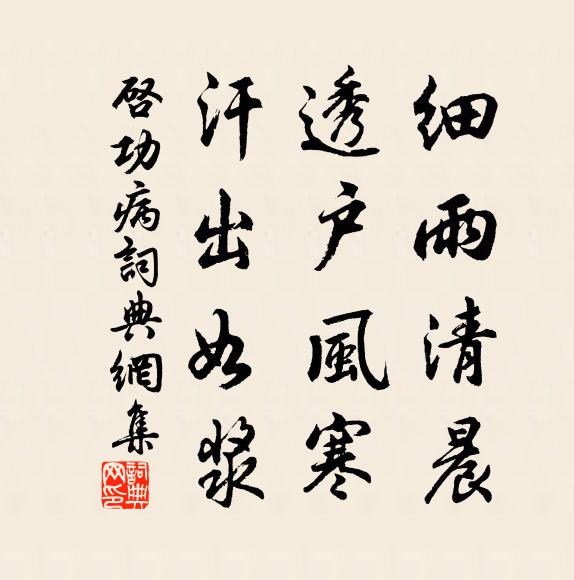 细雨清晨
透户風寒
汗出如漿
啓功病詞典網集
詞典网印